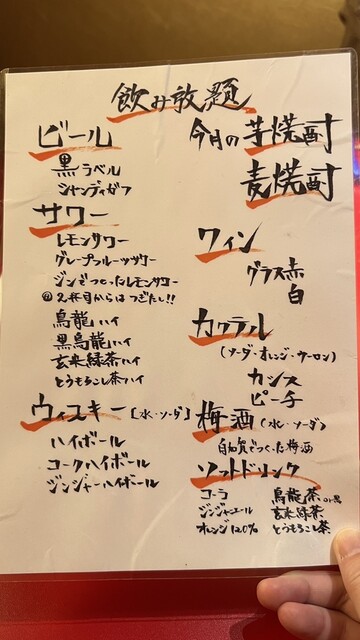 飲み放題
ビール
黒ラベル
シャンディガフ
サワー
レモンサワー
グレープフルーツサワー
ジンでつくったレモンサワー
2杯目からはつぎたし!!
烏龍ハイ
黒烏龍ハイ
玄米緑茶ハイ
とうもろこし茶ハイ
ウィスキー [水・ソーダ]
ハイボール
コークハイボール
ジンジャーハイボール
今月の芋焼酎
麦焼酎
ワイン
グラス赤
白
カクテル
(ソーダ・オレンジ・ウーロン)
カシス
ピーチ
梅酒 (水・ソーダ)
自加賀でつくった梅酒
ソフトドリンク
コーラ
ジンジャーエール
オレンジ120%
烏龍茶 or 黒
玄米緑茶
とうもろこし茶